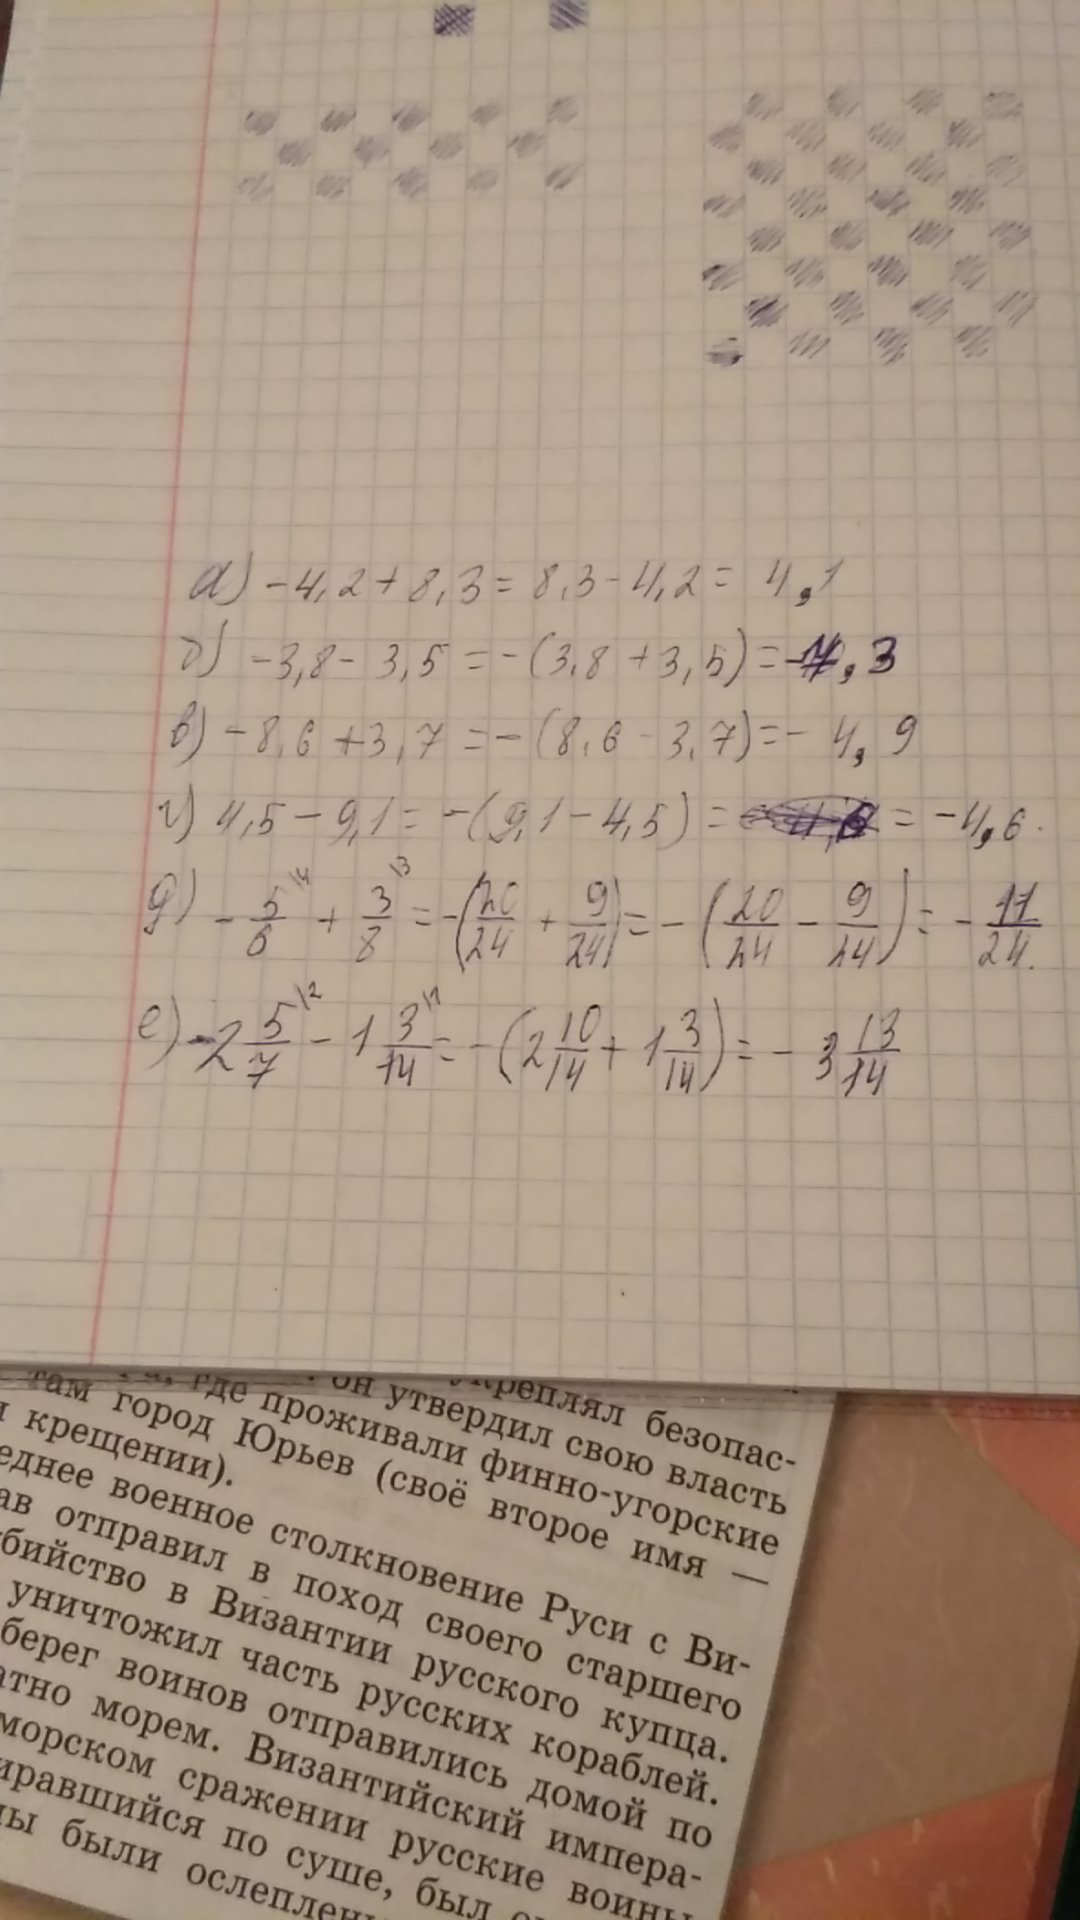 а) -4,2 + 8,3 = 8,3 - 4,2 = 4,1
б) -3,8 - 3,5 = -(3,8 + 3,5) = -7,3
в) -8,6 + 3,7 = -(8,6 - 3,7) = -4,9
г) 4,5 - 9,1 = -(9,1 - 4,5) = = -4,6.
д) -5/6 \4 + 3/8 \3 = -(20/24 + 9/24) = -(20/24 - 9/24) = -11/24.
е) -2 5/7 \2 - 1 3/14 \1 = -(2 10/14 + 1 3/14) = -3 13/14
укреплял безопас-
он утвердил свою власть
где проживали финно-угорские
там город Юрьев (своё второе имя —
крещении).
военное столкновение Руси с Ви-
отправил в поход своего старшего
в Византии русского купца.
уничтожил часть русских кораблей.
берег воинов отправились домой по
морем. Византийский импера-
морском сражении русские воины
по суше, был
были